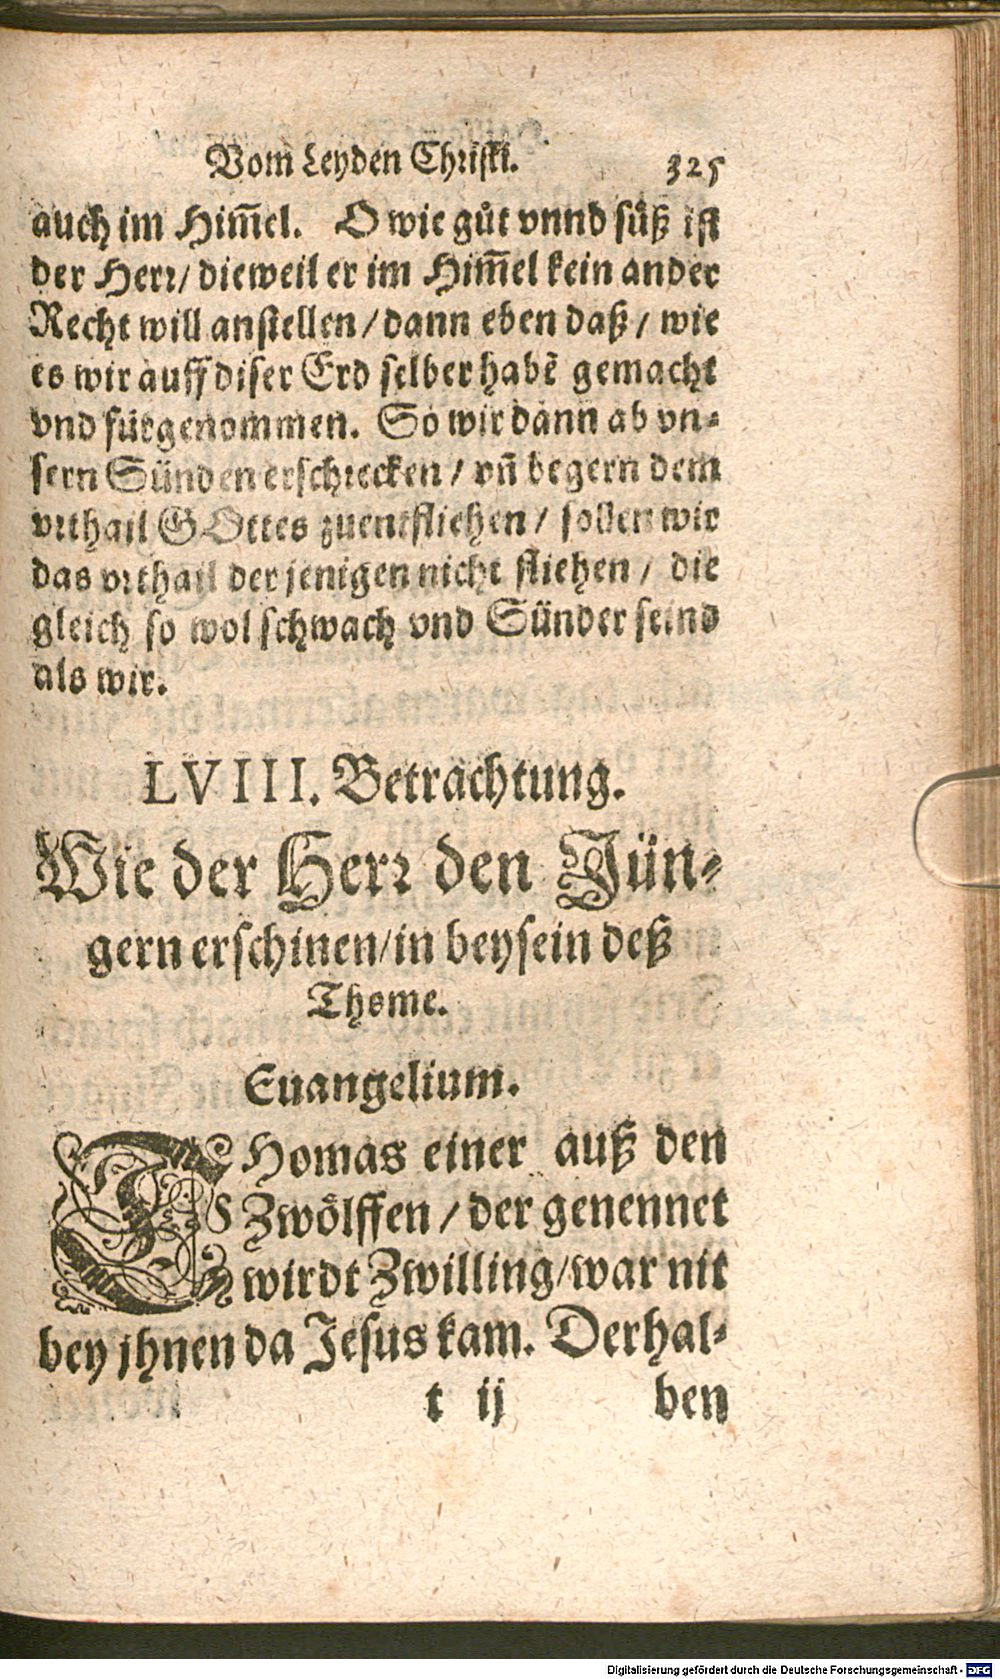 Vom Leyden Christi. 325
auch im Him̃el. O wie gůt vnnd süß ist
der Herr/ dieweil er im Him̃el kein ander
Recht will anstellen / dann eben daß / wie
es wir auff diser Erd selber habẽ gemacht
vnd fürgenommen. So wir dann ab vn-
sern Sünden erschrecken / vñ begern dem
vrthail GOttes zuentfliehen / sollen wir
das vrthail der jenigen nicht fliehen / die
gleich so wol schwach vnd Sünder seind
als wir.
LVIII. Betrachtung.
Wie der Herr den Jün-
gern erschinen/in beysein deß
Thome.
Euangelium.
THomas einer auß den
Zwölffen / der genennet
wirdt Zwilling/war nit
bey jhnen da Jesus kam. Derhal-
t ij ben
Digitalisierung gefördert durch die Deutsche Forschungsgemeinschaft - DFG